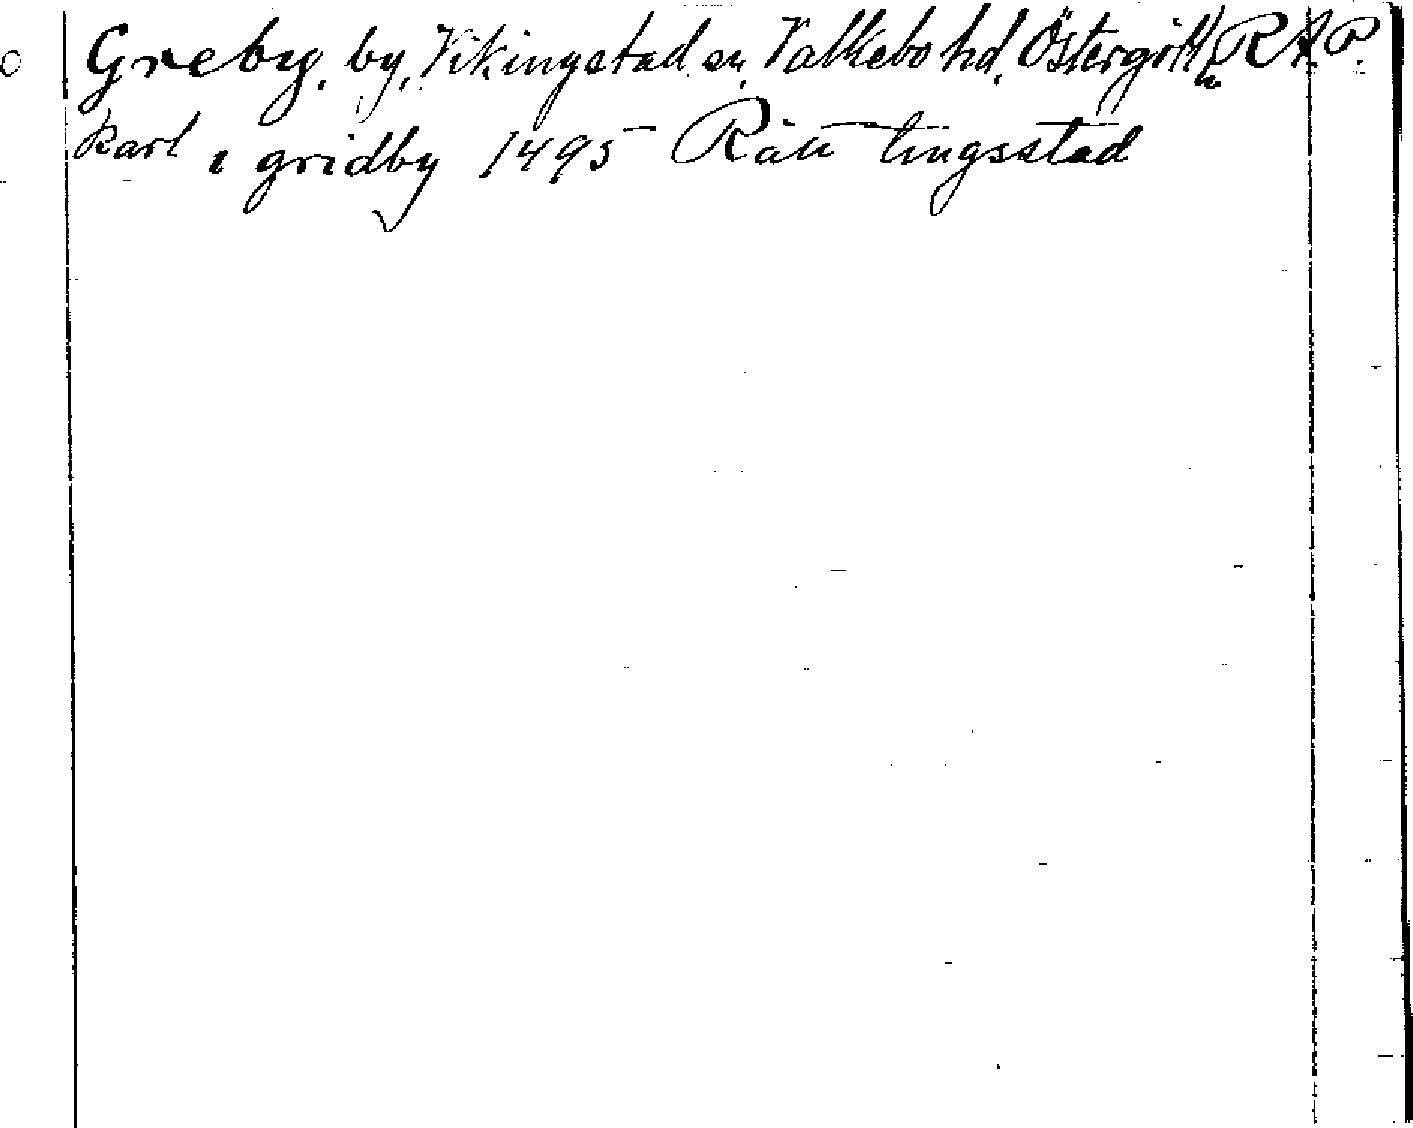 Greby, by, Vikingstad sn, Valkebo hd, Östergötl, RAP.
karl i gridby 1495 Rätt tingsstad